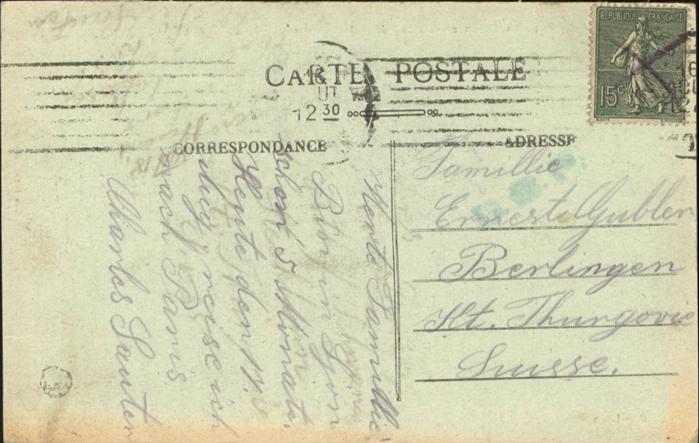 CARTE POSTALE
REPUBLIQUE FRANÇAISE
15c
12 30
CORRESPONDANCE
ADRESSE
Werte Familie!
Bin in Lyon
schon 5 Monat.
Heute den 18.
reise ich
nach Paris
Charles Sauter
Famillie
Ernest Gubler
Berlingen
Kt. Thurgovie
Suisse.